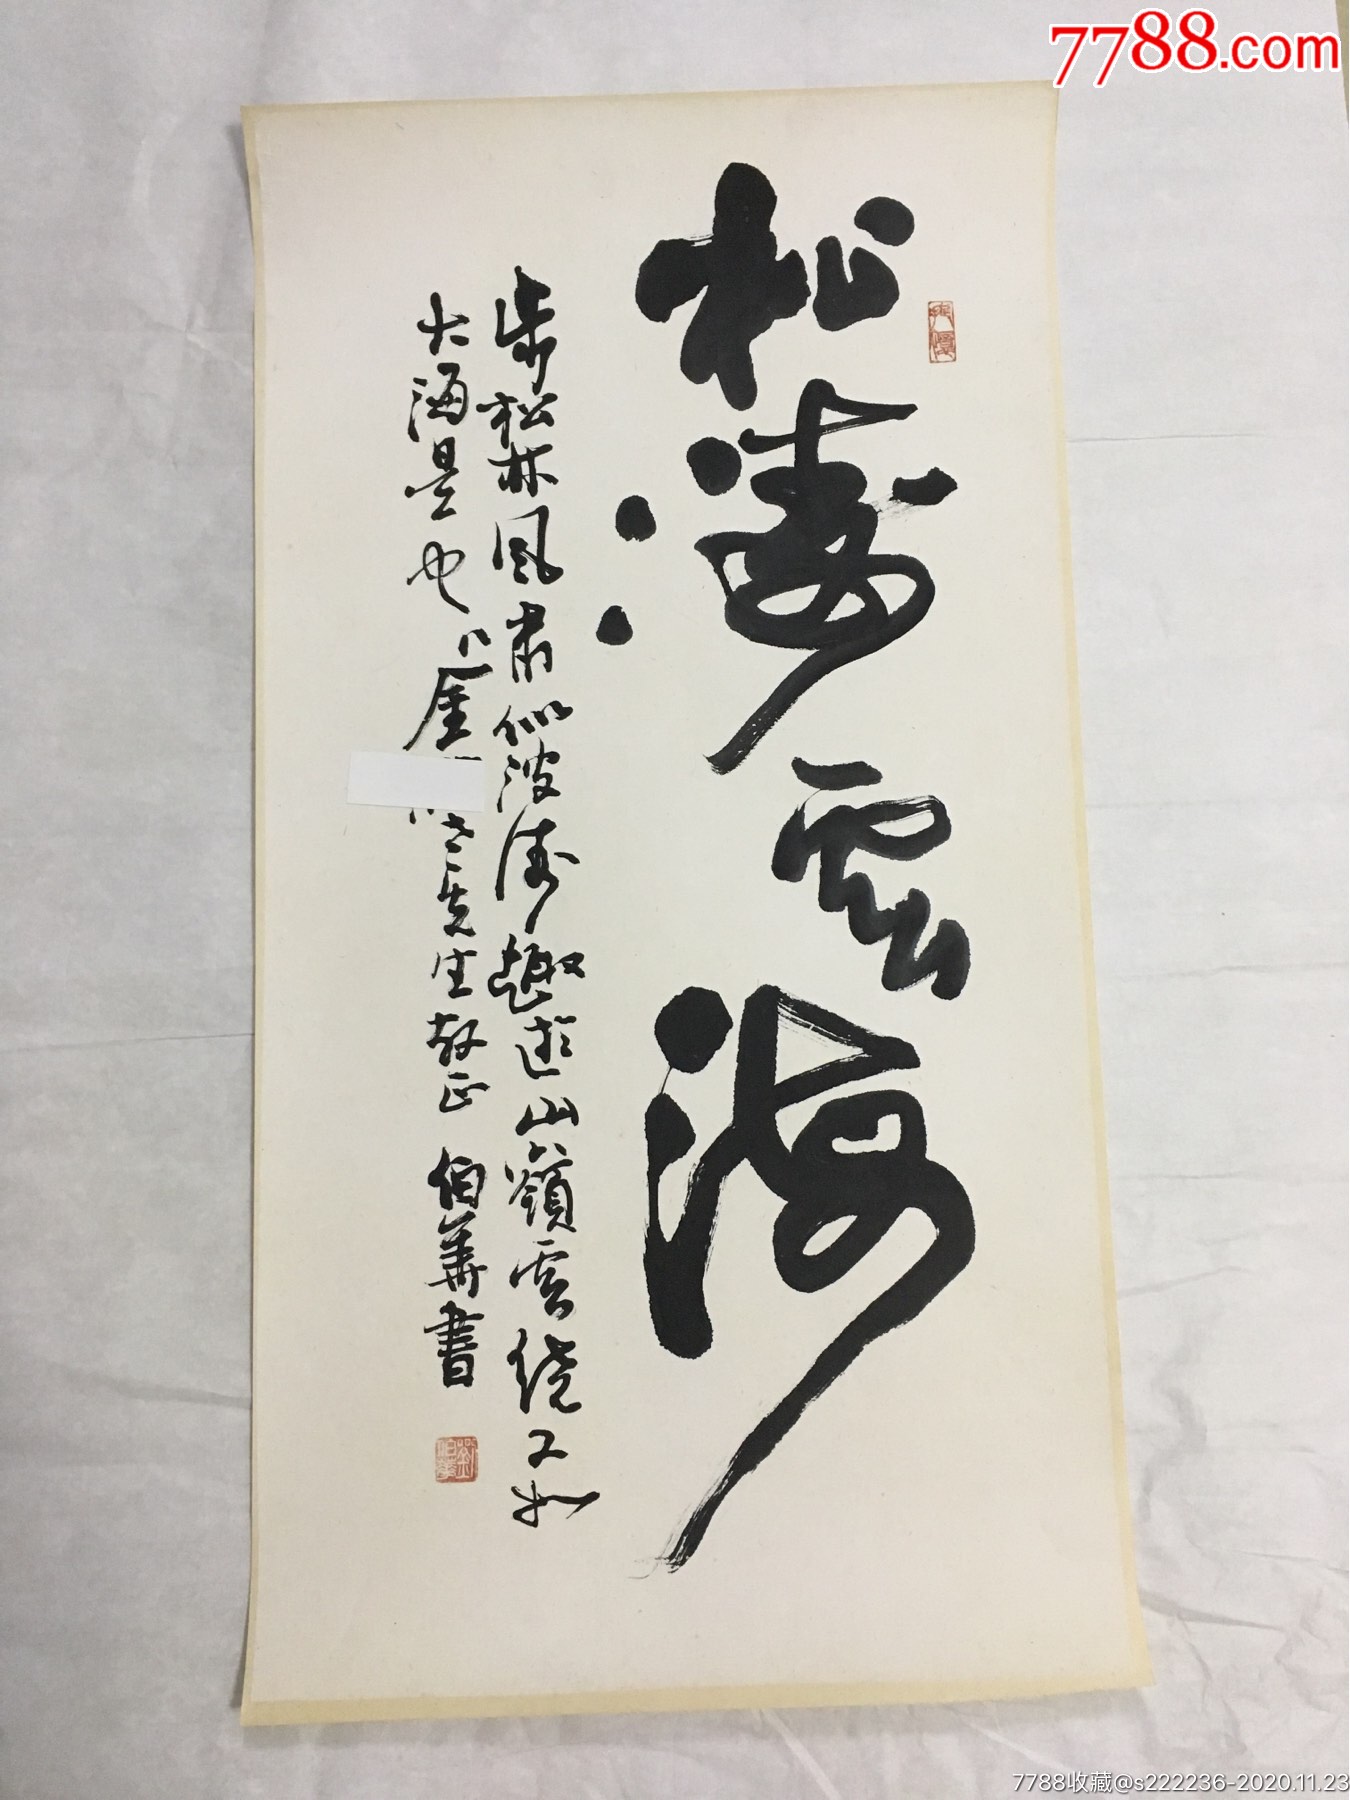 7788.com
松濤雲海
步松林風肃似波涛趣逰山嶺雲绕又如
大海是也
先生教正 伯華書
7788收藏@s222236-2020.11.23